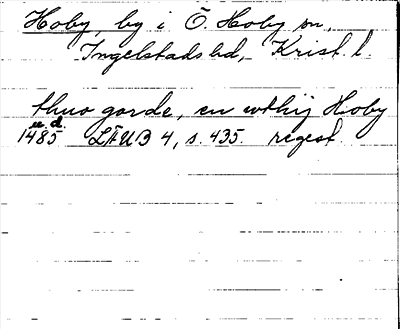 Hoby by i Ö. Hoby sn,
Ingelstads hd, Krist. l.
thuo gorde, en wthij Hoby
u.d.
1485 LÄUB 4, s. 435. regest.